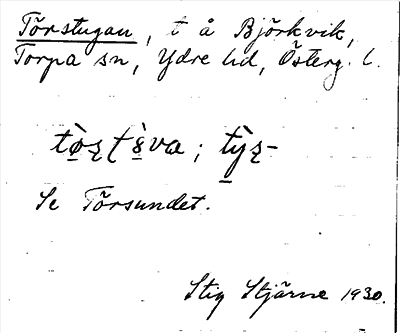 Törstugan, t å Björkvik,
Torpa sn, Ydre hd, Österg. l.
tø̀ʂtɛ̀va; tỳʂ-
Se Törsundet.
Stig Stjärne 1930.